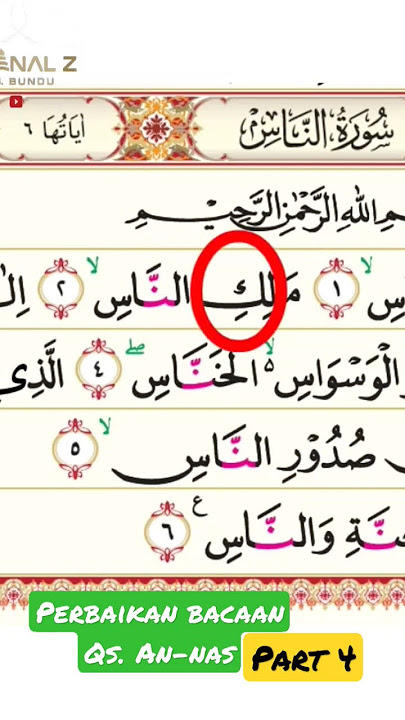 NAL Z
. BUNDU
سُوْرَةُ النَّاسِ
اٰيَاتُهَا ٦
اللّٰهِ الرَّحْمٰنِ الرَّحِيْمِ
سِ ۙ ١ مَلِكِ النَّاسِ ۙ ٢
الْوَسْوَاسِ ەۙ الْخَنَّاسِ ۖ ٤ الَّذِي
صُدُوْرِ النَّاسِ ۙ ٥
وَالنَّاسِ ࣖ ٦
PERBAIKAN BACAAN
QS. AN-NAS PART 4